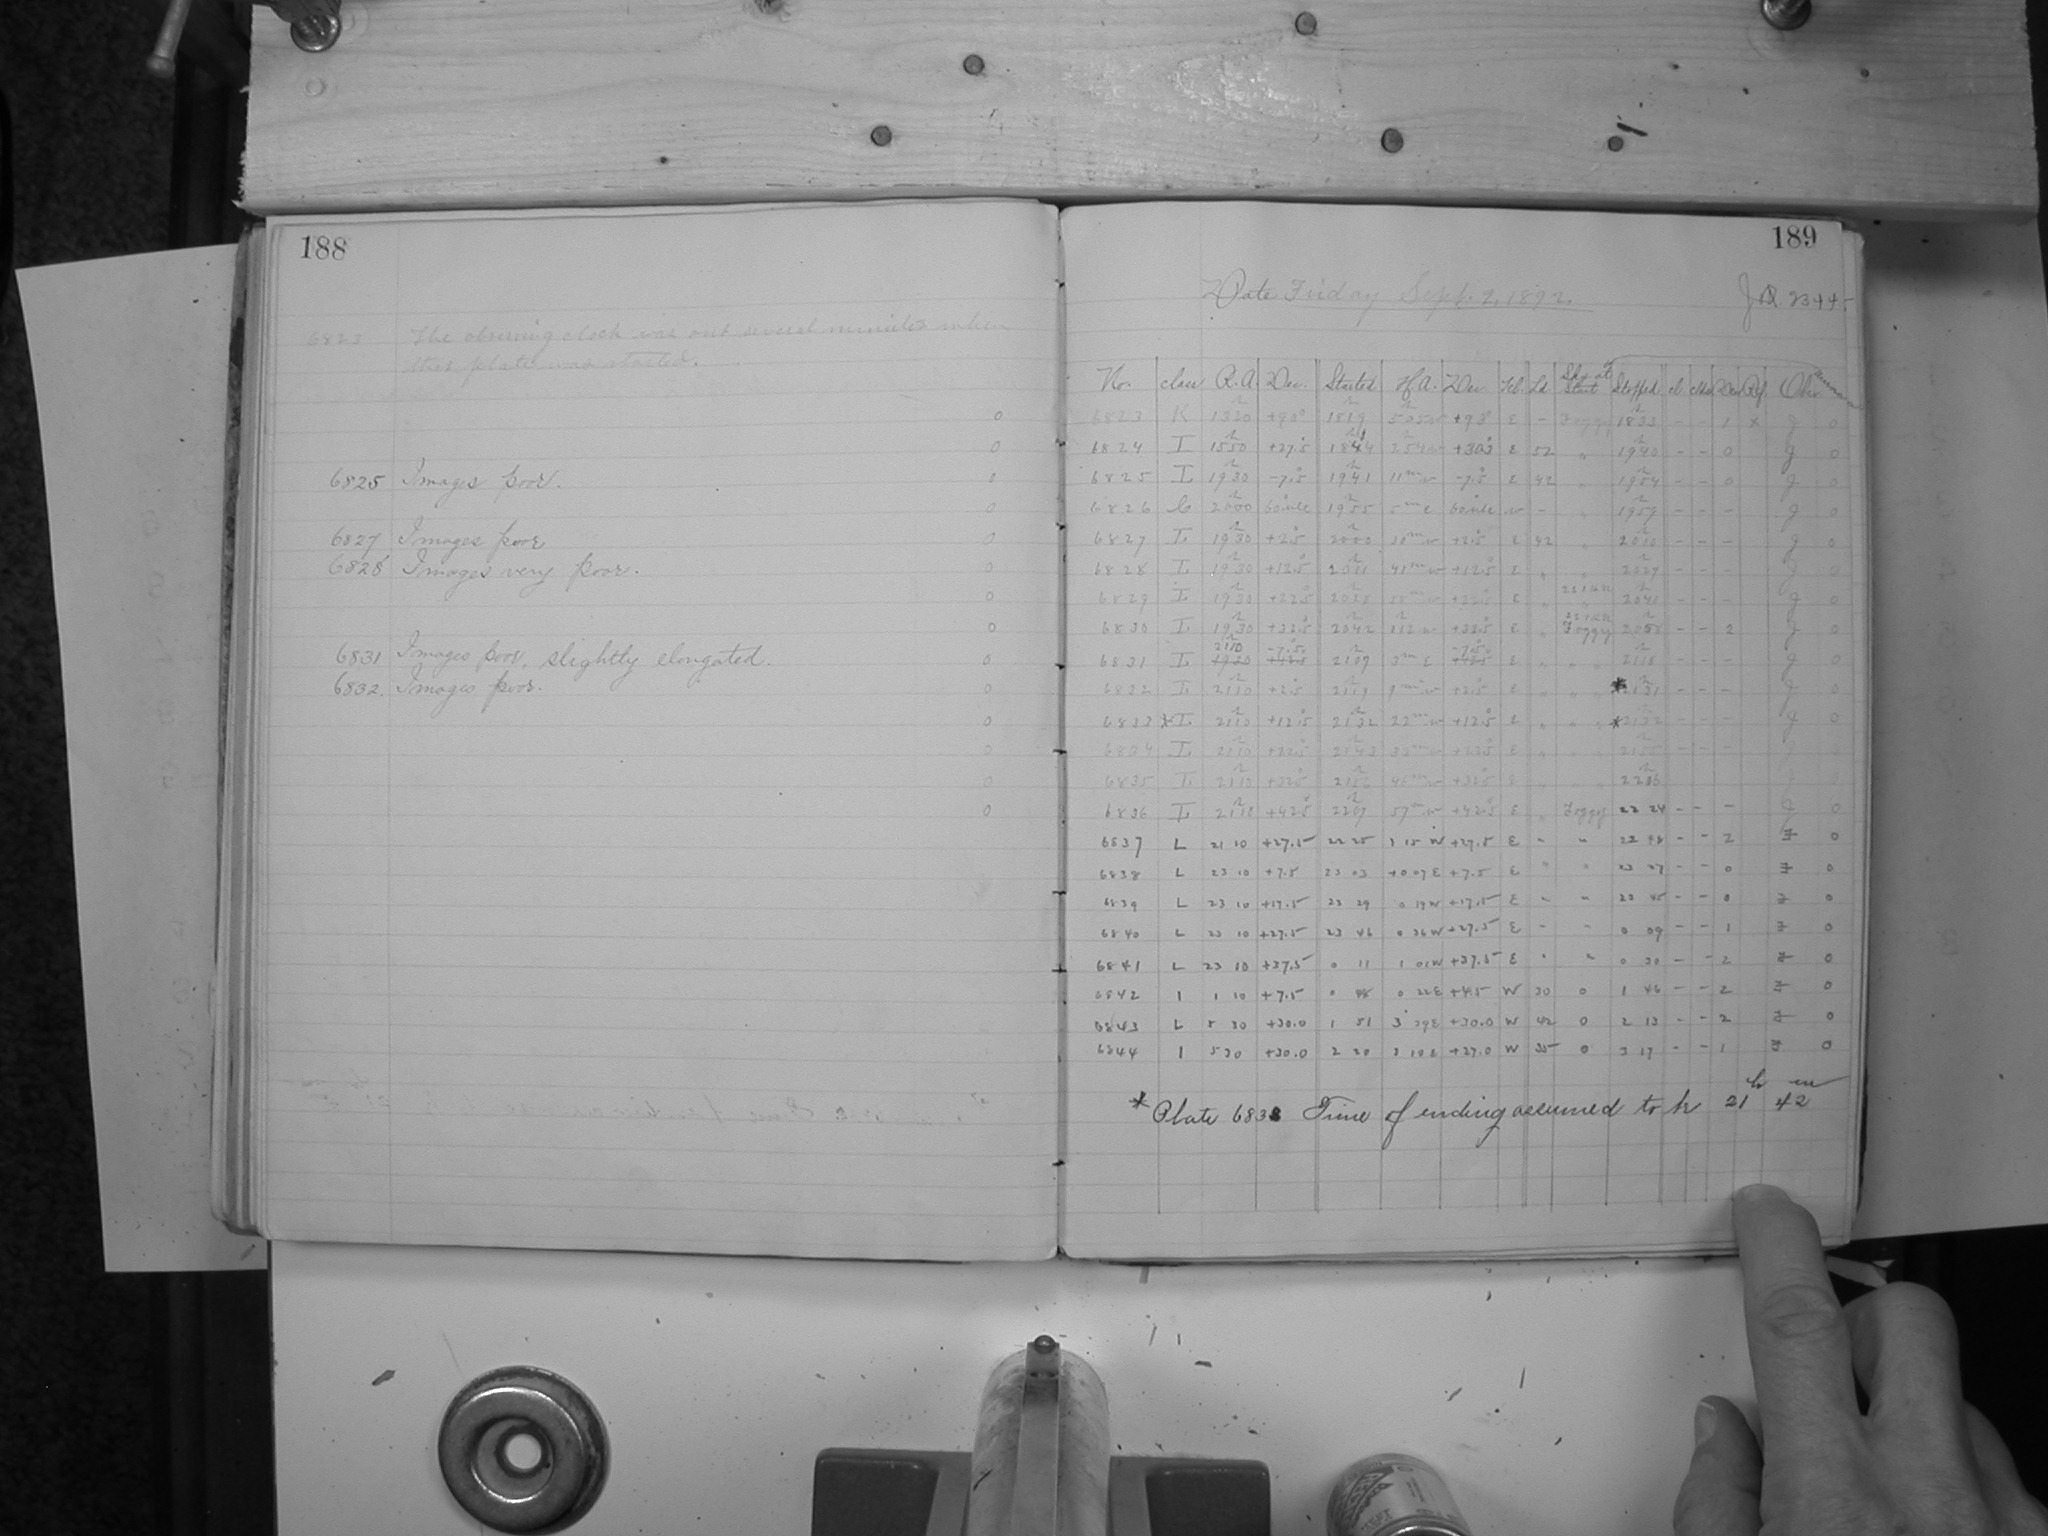 188
6823 The observing clock was out several minutes when
this plate was started.
6825 Images poor.
6827 Images poor
6828 Images very poor.
6831 Images poor, slightly elongated.
6832. Images poor.
189
Date Friday Sept. 2, 1892.
No. class R.A. Dec. Started H.A. Dec Sky at Start Stopped cl Obs
6823 K 1320 +90° 1819 +90° E - Foggy 1833 - - 1 x J 0
6824 I 1550 +27.5 1844 E 52 " 1940 - - 0 J 0
6825 I 1930 -7.5 1941 11m w -7.5 E 42 " 1954 - - 0 J 0
6826 C 2000 1955 5m E w - " 1959 - - - J 0
6827 I 1930 +2.5 2000 30m w +2.5 E 42 " 2010 - - - J 0
6828 I 1930 +12.5 2011 41m w +12.5 E " " 2027 - - - J 0
6829 I 1930 +22.5 2028 58m w +22.5 E " 2041 - - - J 0
6830 I 1930 +32.5 2042 112 w +32.5 E " Foggy 2058 - - 2 J 0
2110 -7.5 -7.5
6831 I 2109 E " " 2118 - - - J 0
6832 I 2110 +2.5 2119 9m w +2.5 E " " *2131 - - - J 0
6833 *I 2110 +12.5 2132 22m w +12.5 E " " *2132 - - - J 0
6834 I 2110 +22.5 2143 33m w +22.5 E " " 2155 - - -
6835 I 2110 +32.5 46m w +32.5 E " " 2206
6836 I 2110 +42.5 2207 57m w +42.5 E " Foggy 22 24 - - - J 0
6837 L 21 10 +27.5 22 25 1 15 W +27.5 E " " 22 48 - - 2 0
6838 L 23 10 +7.5 23 03 +0 07 E +7.5 E " " 23 27 - - 0 0
6839 L 23 10 +17.5 23 29 0 19 W +17.5 E " " 23 45 - - 0 0
6840 L 23 10 +27.5 23 46 0 36 W +27.5 E " " 0 09 - - 1 0
6841 L 23 10 +37.5 0 11 1 01 W +37.5 E " " 0 30 - - 2 0
6842 I 1 10 +7.5 0 48 0 22 E +4.5 W 30 0 1 46 - - 2 0
6843 L 5 30 +30.0 1 51 3 39 E +30.0 W 42 0 2 13 - - 2 0
6844 I 5 30 +30.0 2 20 3 10 E +27.0 W 35 0 3 17 - - 1 0
* Plate 683 Time of ending assumed to be 21 h 42 m